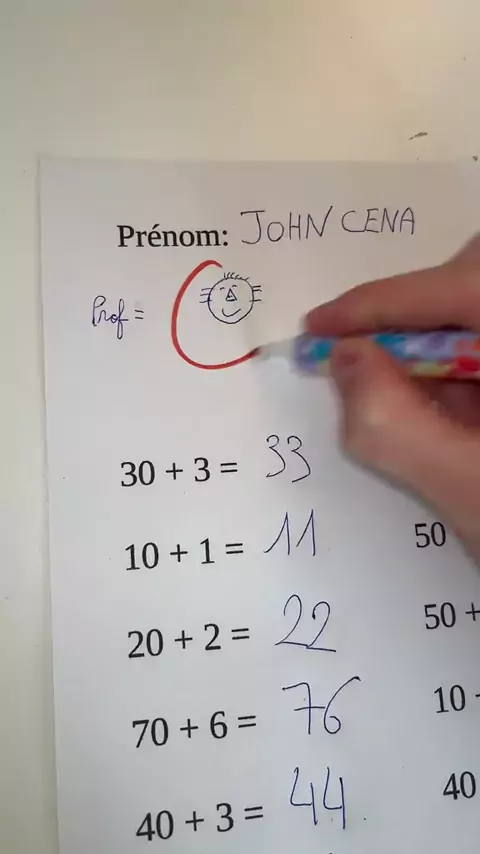 Prénom: JOHN CENA
Prof =
30 + 3 = 33
10 + 1 = 11
50
20 + 2 = 22
50 +
70 + 6 = 76
10 -
40 + 3 = 44
40